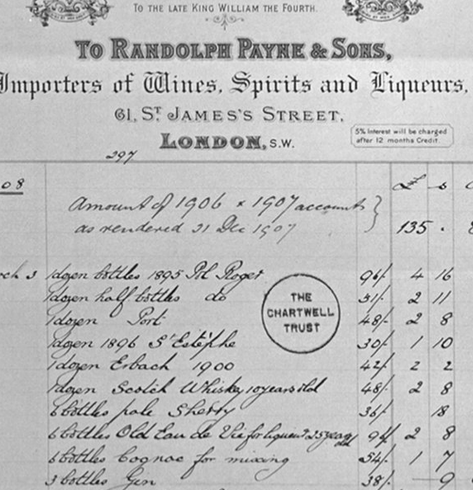 TO THE LATE KING WILLIAM THE FOURTH.
TO RANDOLPH PAYNE & SONS,
Importers of Wines, Spirits and Liqueurs,
61, ST JAMES'S STREET,
LONDON, S.W.
5% Interest will be charged
after 12 months Credit.
297
08 £ s
Amount of 1906 & 1907 accounts
as rendered 31 Dec 1907 135 .
ch 3 1 dozen bottles 1895 Pol Roger 96/- 4 16
1 dozen half bottles do 51/- 2 11
1 dozen Port 48/- 2 8
1 dozen 1896 St Estéphe 30/- 1 10
1 dozen Erbach 1900 42/- 2 2
1 dozen Scotch Whiskey 10 years old 48/- 2 8
6 bottles pale Sherry 36/- 18
6 bottles Old Eau de Vie for liqueur 25 years old 2 8
6 bottles Cognac for mixing 54/- 1 7
3 bottles Gin 38/- 9
THE
CHARTWELL
TRUST